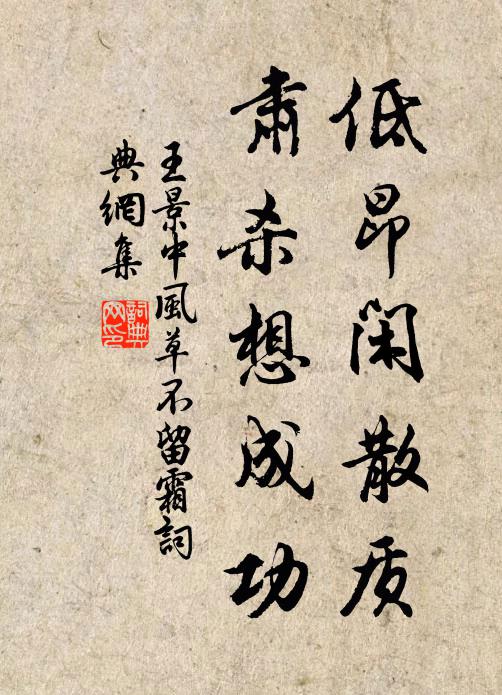 低昂闲散质
肃杀想成功
王景中風草不留霜詞
典網集
詞典
网印